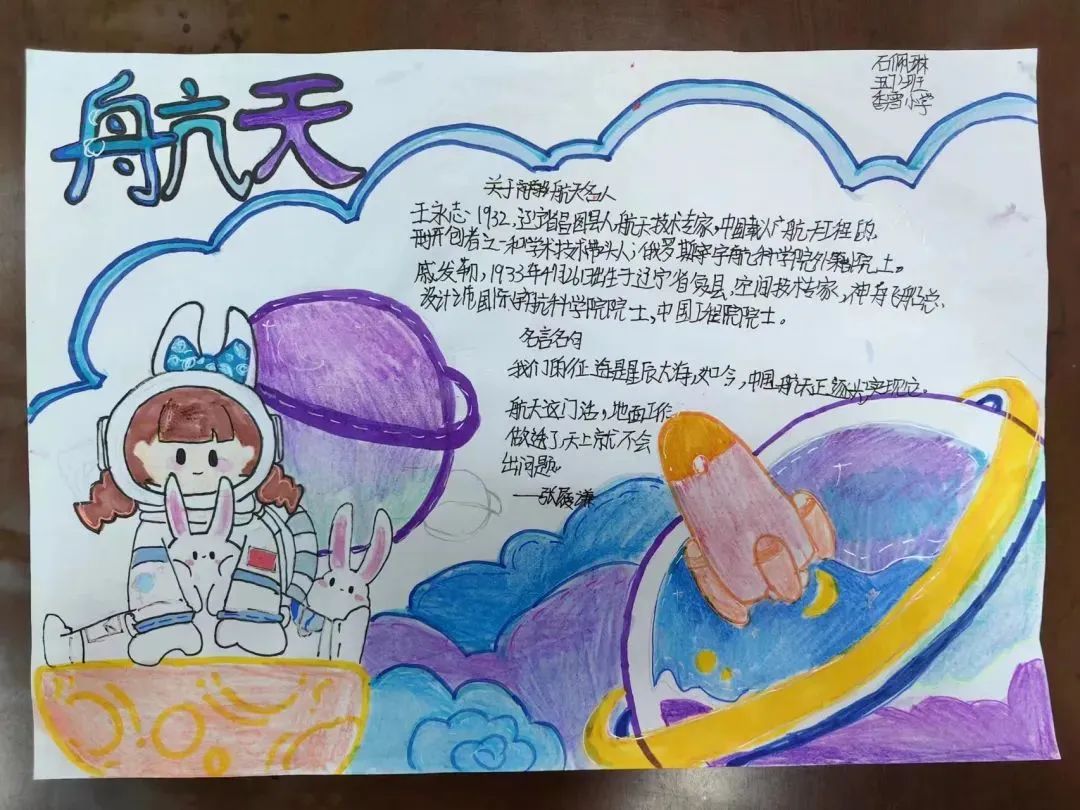 舟航天
石佩琳
五(1)班
香雪小学
关于航天名人
王永志 1932,辽宁省昌图县人,航天技术专家,中国载人航天工程的
开创者之一和学术技术带头人,俄罗斯宇宙航科学院外籍院士。
戚发轫,1933年4月26日出生于辽宁省复县,空间技术专家,神舟飞船总
设计师国际宇航科学院院士,中国工程院院士。
名言名句
我们的征途是星辰大海,如今,中国航天正逐步实现它。
航天这门活,地面工作
做透了天上就不会
出问题。
——张履谦